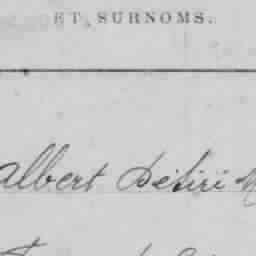 ET SURNOMS.
Albert Désiré